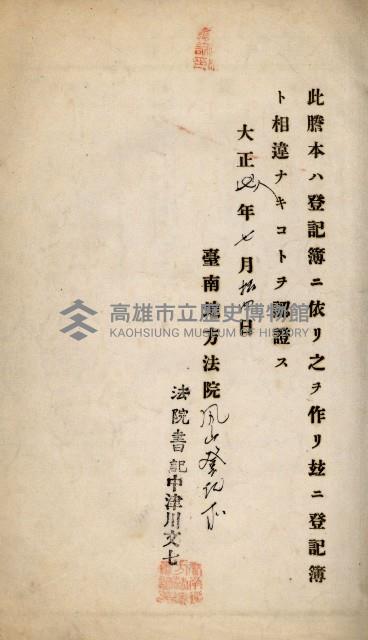 此謄本ハ登記簿ニ依リ之ヲ作リ玆ニ登記簿
ト相違ナキコトヲ認證ス
大正四年七月拾四日
臺南地方法院鳳山登記所
法院書記中津川文七
高雄市立歷史博物館
KAOHSIUNG MUSEUM OF HISTORY